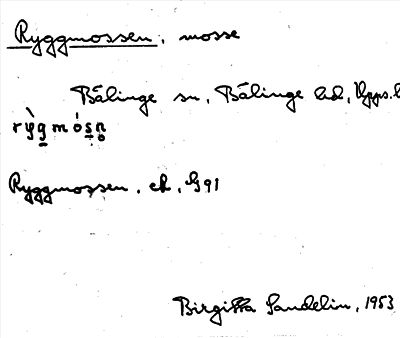 Ryggmossen, mosse
Bälinge sn, Bälinge hd, Upps. l
rỳg̲mós̲n̥
Ryggmossen, ek, G91
Birgitta Sandelin, 1953